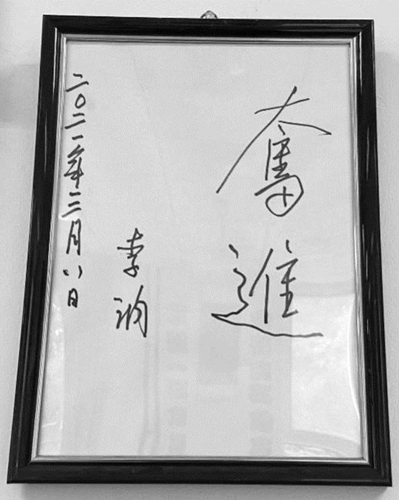 奮進
李讷
二〇二一年三月八日